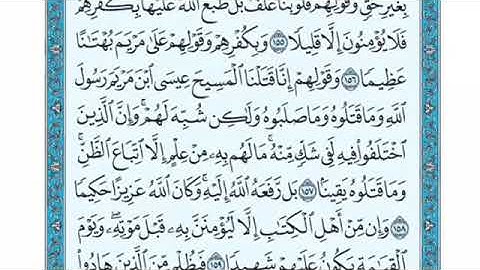 بِغَيْرِ حَقٍّ وَقَوْلِهِمْ قُلُوبُنَا غُلْفٌۢ بَلْ طَبَعَ ٱللَّهُ عَلَيْهَا بِكُفْرِهِمْ
فَلَا يُؤْمِنُونَ إِلَّا قَلِيلًا ١٥٥ وَبِكُفْرِهِمْ وَقَوْلِهِمْ عَلَىٰ مَرْيَمَ بُهْتَٰنًا
عَظِيمًا ١٥٦ وَقَوْلِهِمْ إِنَّا قَتَلْنَا ٱلْمَسِيحَ عِيسَى ٱبْنَ مَرْيَمَ رَسُولَ
ٱللَّهِ وَمَا قَتَلُوهُ وَمَا صَلَبُوهُ وَلَٰكِن شُبِّهَ لَهُمْ ۚ وَإِنَّ ٱلَّذِينَ
ٱخْتَلَفُوا۟ فِيهِ لَفِى شَكٍّ مِّنْهُ ۚ مَا لَهُم بِهِۦ مِنْ عِلْمٍ إِلَّا ٱتِّبَاعَ ٱلظَّنِّ ۚ
وَمَا قَتَلُوهُ يَقِينًۢا ١٥٧ بَل رَّفَعَهُ ٱللَّهُ إِلَيْهِ ۚ وَكَانَ ٱللَّهُ عَزِيزًا حَكِيمًا
١٥٨ وَإِن مِّنْ أَهْلِ ٱلْكِتَٰبِ إِلَّا لَيُؤْمِنَنَّ بِهِۦ قَبْلَ مَوْتِهِۦ ۖ وَيَوْمَ
ٱلْقِيَٰمَةِ يَكُونُ عَلَيْهِمْ شَهِيدًا ١٥٩ فَبِظُلْمٍ مِّنَ ٱلَّذِينَ هَادُوا۟